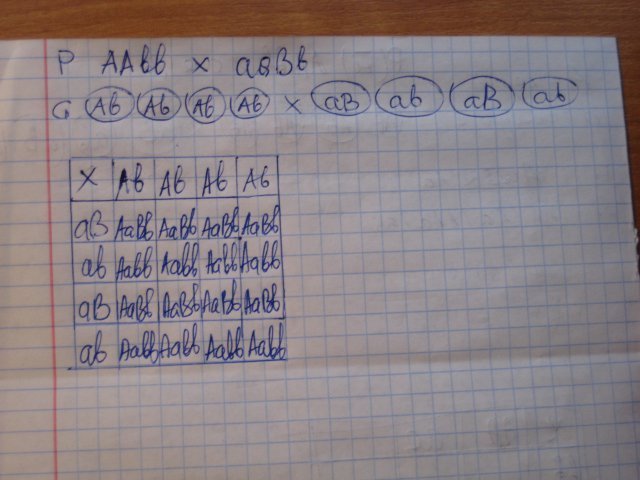 P AAbb x aaBb
G Ab Ab Ab Ab x aB ab aB ab
x Ab Ab Ab Ab
aB AaBb AaBb AaBb AaBb
ab Aabb Aabb Aabb Aabb
aB AaBb AaBb AaBb AaBb
ab Aabb Aabb Aabb Aabb